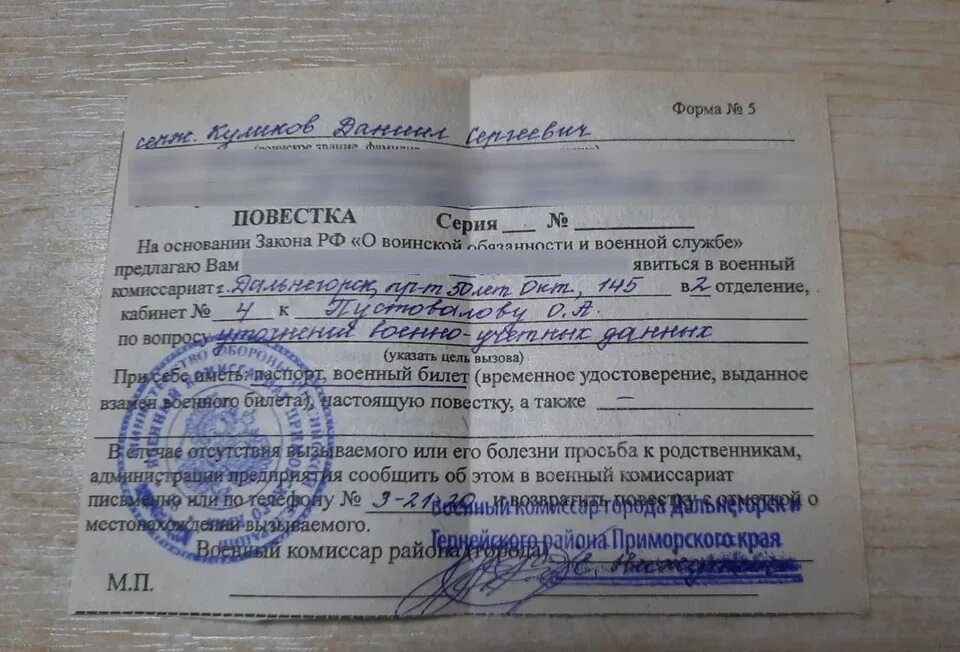 Форма № 5
серж. Куликов Даниил Сергеевич
(воинское звание, фамилия
ПОВЕСТКА Серия № 
На основании Закона РФ «О воинской обязанности и военной службе»
предлагаю Вам явиться в военный
комиссариат г. Дальнегорск, пр-т 50 лет Окт, 145 в 2 отделение,
кабинет № 4 к Пустовалову О.А.
по вопросу уточнения военно-учетных данных
(указать цель вызова)
При себе иметь: паспорт, военный билет (временное удостоверение, выданное
взамен военного билета), настоящую повестку, а также —
В случае отсутствия вызываемого или его болезни просьба к родственникам,
администрации предприятия сообщить об этом в военный комиссариат
письменно или по телефону № 3-21-20 и возвратить повестку с отметкой о
местонахождении вызываемого.
Военный комиссар города Дальнегорск и
Тернейского района Приморского края
Военный комиссар района (города)
М.П.